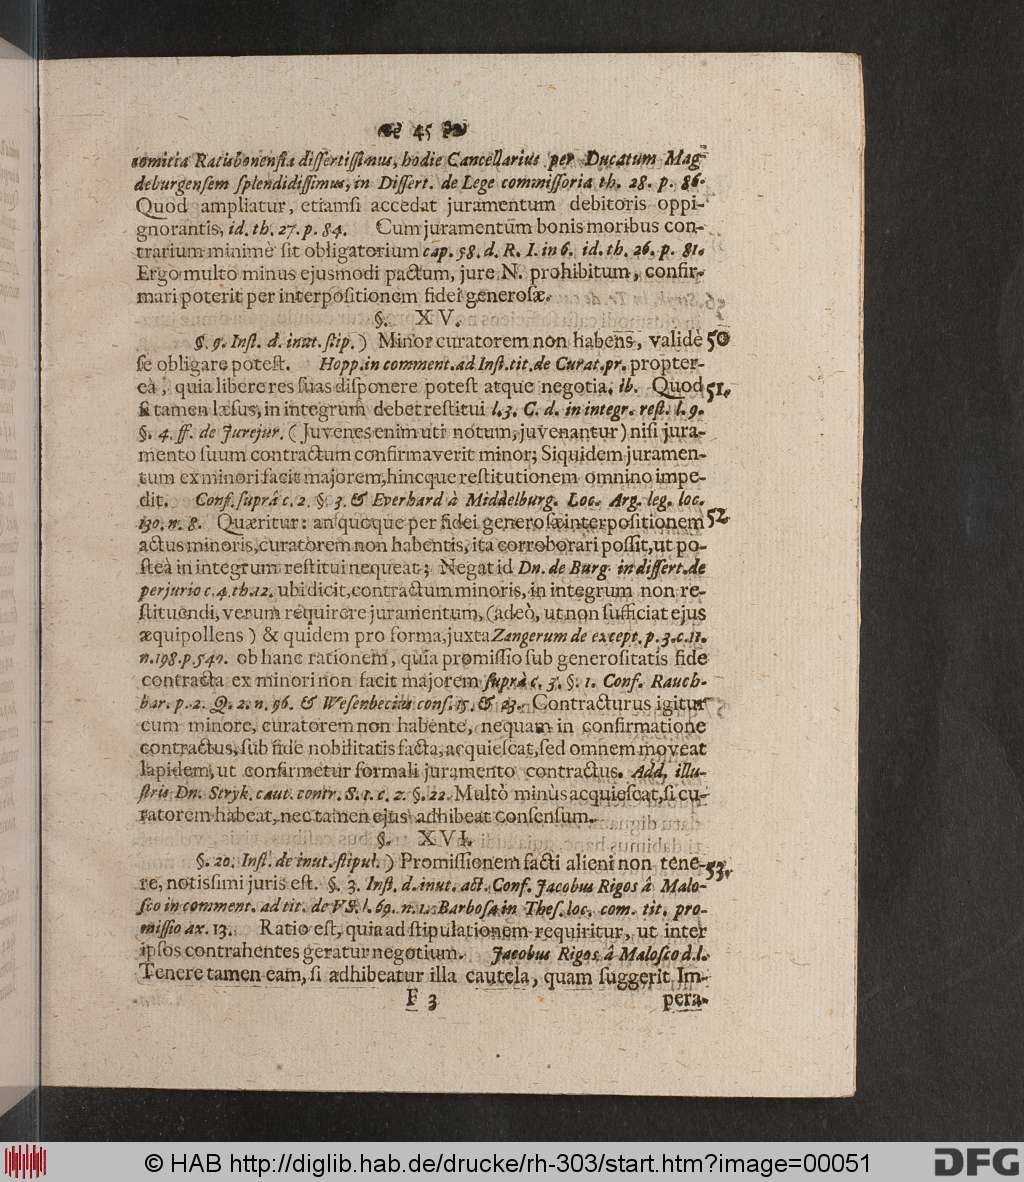 45
comitia Ratisbonensia dissertissimus, hodie Cancellarius per Ducatum Mag-
deburgensem splendidissimus, in Dissert. de Lege commissoria th. 28. p. 86.
Quod ampliatur, etiamsi accedat juramentum debitoris oppi-
gnorantis, id. th. 27. p. 84. Cum juramentum bonis moribus con-
trarium minimè sit obligatorium cap. 58. d. R. I. in 6. id. th. 26. p. 81.
Ergo multo minus ejusmodi pactum, jure N. prohibitum, confir-
mari poterit per interpositionem fidei generosæ.
§. XV.
§. 9. Inst. d. inut. stip. ) Minor curatorem non habens, validè 50
se obligare potest. Hopp. in comment. ad Inst. tit. de Curat. pr. propter-
eà, quia libere res suas disponere potest atque negotia. ib. Quod 51.
si tamen læsus, in integrum debet restitui l. 3. C. d. in integr. rest. l. 9.
§. 4. ff. de Jurejur. ( Juvenes enim uti notum, juvenantur ) nisi jura-
mento suum contractum confirmaverit minor; Siquidem juramen-
tum ex minori facit majorem, hincque restitutionem omnino impe-
dit. Conf. suprà c. 2. §. 3. & Everhard à Middelburg. Loc. Arg. leg. loc.
130. n. 8. Quæritur: an quoque per fidei generosæ interpositionem 52
actus minoris, curatorem non habentis, ita corroborari possit, ut po-
steà in integrum restitui nequeat; Negat id Dn. de Burg. in dissert. de
perjurio c. 4. th. 12. ubi dicit, contractum minoris, in integrum non re-
stituendi, verum requirere juramentum, (adeò, ut non sufficiat ejus
æquipollens ) & quidem pro forma, juxta Zangerum de except. p. 3. c. 11.
n. 198. p. 547. ob hanc rationem, quia promissio sub generositatis fide
contracta ex minori non facit majorem suprà c. 3. §. 1. Conf. Rauch-
bar. p. 2. Q. 2. n. 96. & Wesenbecius conf. 15. & 23. Contracturus igitur
cum minore, curatorem non habente, nequam in confirmatione
contractus, sub fide nobilitatis facta, acquiescat, sed omnem moveat
lapidem, ut confirmetur formali juramento contractus. Add. illu-
stris Dn. Stryk. caut. contr. S. 1. c. 2. §. 22. Multò minùs acquiescat, si cu-
ratorem habeat, nec tamen ejus adhibeat consensum.
§. XVI.
§. 20. Inst. de inut. stipul. ) Promissionem facti alieni non tene- 53.
re, notissimi juris est. §. 3. Inst. d. inut. act. Conf. Jacobus Rigos â Malo-
sco in comment. ad tit. de VS. l. 69. n. 1. Barbosa in Thes. loc. com. tit. pro-
missio ax. 13. Ratio est, quia ad stipulationem requiritur, ut inter
ipsos contrahentes geratur negotium. Jacobus Rigos â Malosco d. l.
Tenere tamen eam, si adhibeatur illa cautela, quam suggerit Im-
F 3 pera-
© HAB http://diglib.hab.de/drucke/rh-303/start.htm?image=00051
DFG